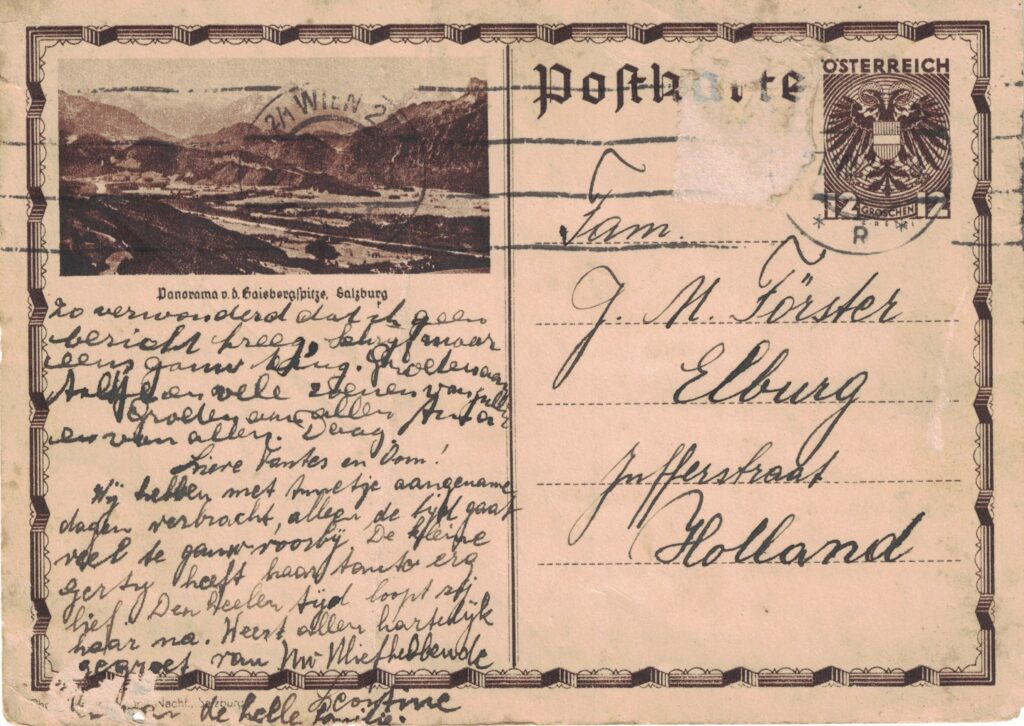 Postkarte
ÖSTERREICH
12 GROSCHEN 12
2/1 WIEN 2
R
Panorama v. d. Gaisbergspitze, Salzburg
Fam.
J. M. Förster
Elburg
Jufferstraat
Holland
Zo verwonderd dat ik geen
bericht kreeg, Schrijf maar
eens gauw terug. Groeten aan
en vele zoenen van jullie
Groeten aan allen
en van allen. Daag.
Lieve Tantes en Oom!
Wij hebben met Annetje aangename
dagen verbracht, alleen de tijd gaat
veel te gauw voorbij. De kleine
Gerty heeft haar tante erg
lief. Den heelen tijd loopt zij
haar na. Weest allen hartelijk
gegroet van Uw Uliefhebbende
Leontine
de helle familie.
Nachf., Salzburg